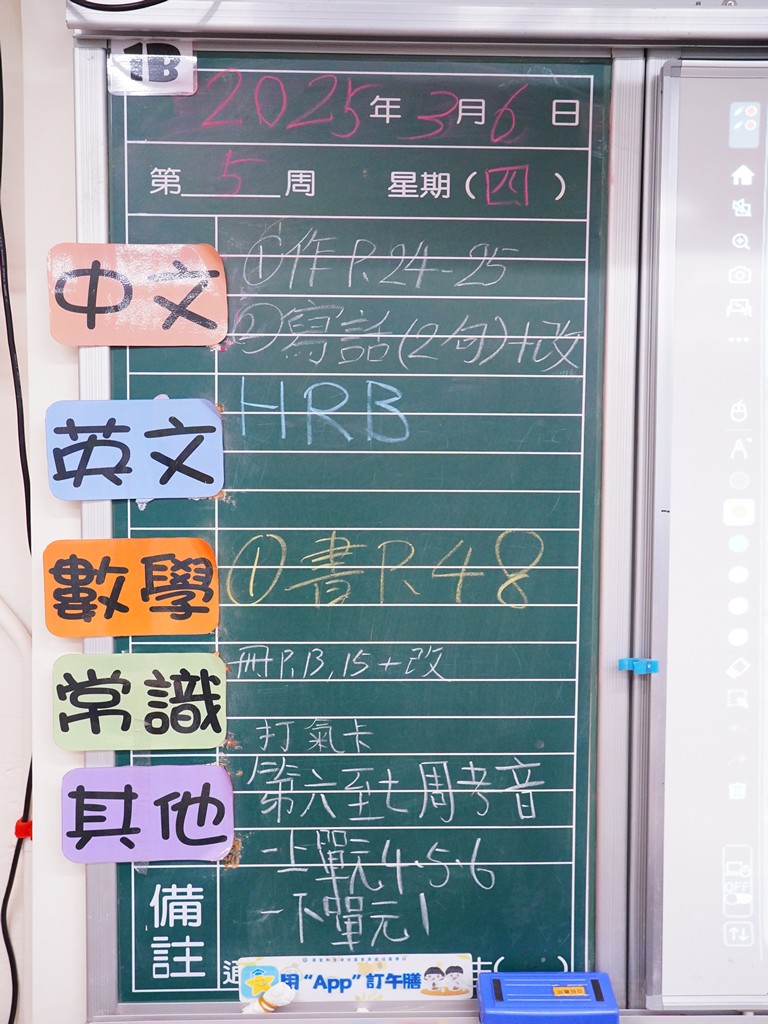 1B
2025年3月6日
第5周 星期(四)
中文
①作P.24-25
②寫話(2句)+改
英文
HRB
數學
①書P.48
常識
冊P.13,15+改
其他
打氣卡
第六至七周考音
一上單元4.5.6
一下單元1
備註
用“App”訂午膳
OFF